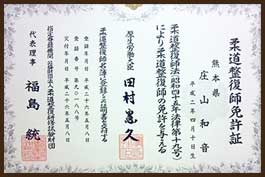 柔道整復師免許証
熊本県
庄山和音
平成二年四月十日生
柔道整復師法(昭和四十五年法律第十九号)
により柔道整復師の免許を与える
厚生労働大臣
田村憲久
柔道整復師名簿に登録し本証明書を交付する
登録年月日 平成二十六年五月八日
登録番号
交付年月日 平成二十六年五月八日
指定登録機関 公益財団法人柔道整復研修試験財団
代表理事 福島統